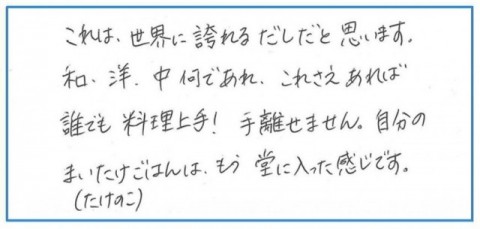 これは、世界に誇れるだしだと思います。
和、洋、中何であれ、これさえあれば
誰でも料理上手！手離せません。自分の
まいたけごはんは、もう堂に入った感じです。
(たけのこ)